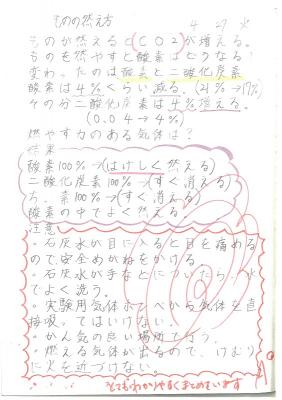 ものの燃え方 4 27 火
ものが燃えると(CO2)が増える。
ものを燃やすと酸素はどうなる?
変わったのは酸素と二酸化炭素
酸素は4%くらい減る。(21%→17%)
その分二酸化炭素は4%増える。
(0.04→4%)
燃やす力のある気体は?
結果
酸素100%→(はげしく燃える)
二酸化炭素100%→(すぐ消える)
ちっ素100%→(すぐ消える)
酸素の中でよく燃える。
注意
・石灰水が目に入ると目を痛める
ので安全めがねをかける
・石灰水が手などについたら、水
でよく洗う。
・実験用気体ボンベから気体を直
接吸ってはいけない。
・かん気の良い場所で行う。
・燃える気体が出るので、けむり
に火を近づけない。
とてもわかりやすくまとめています